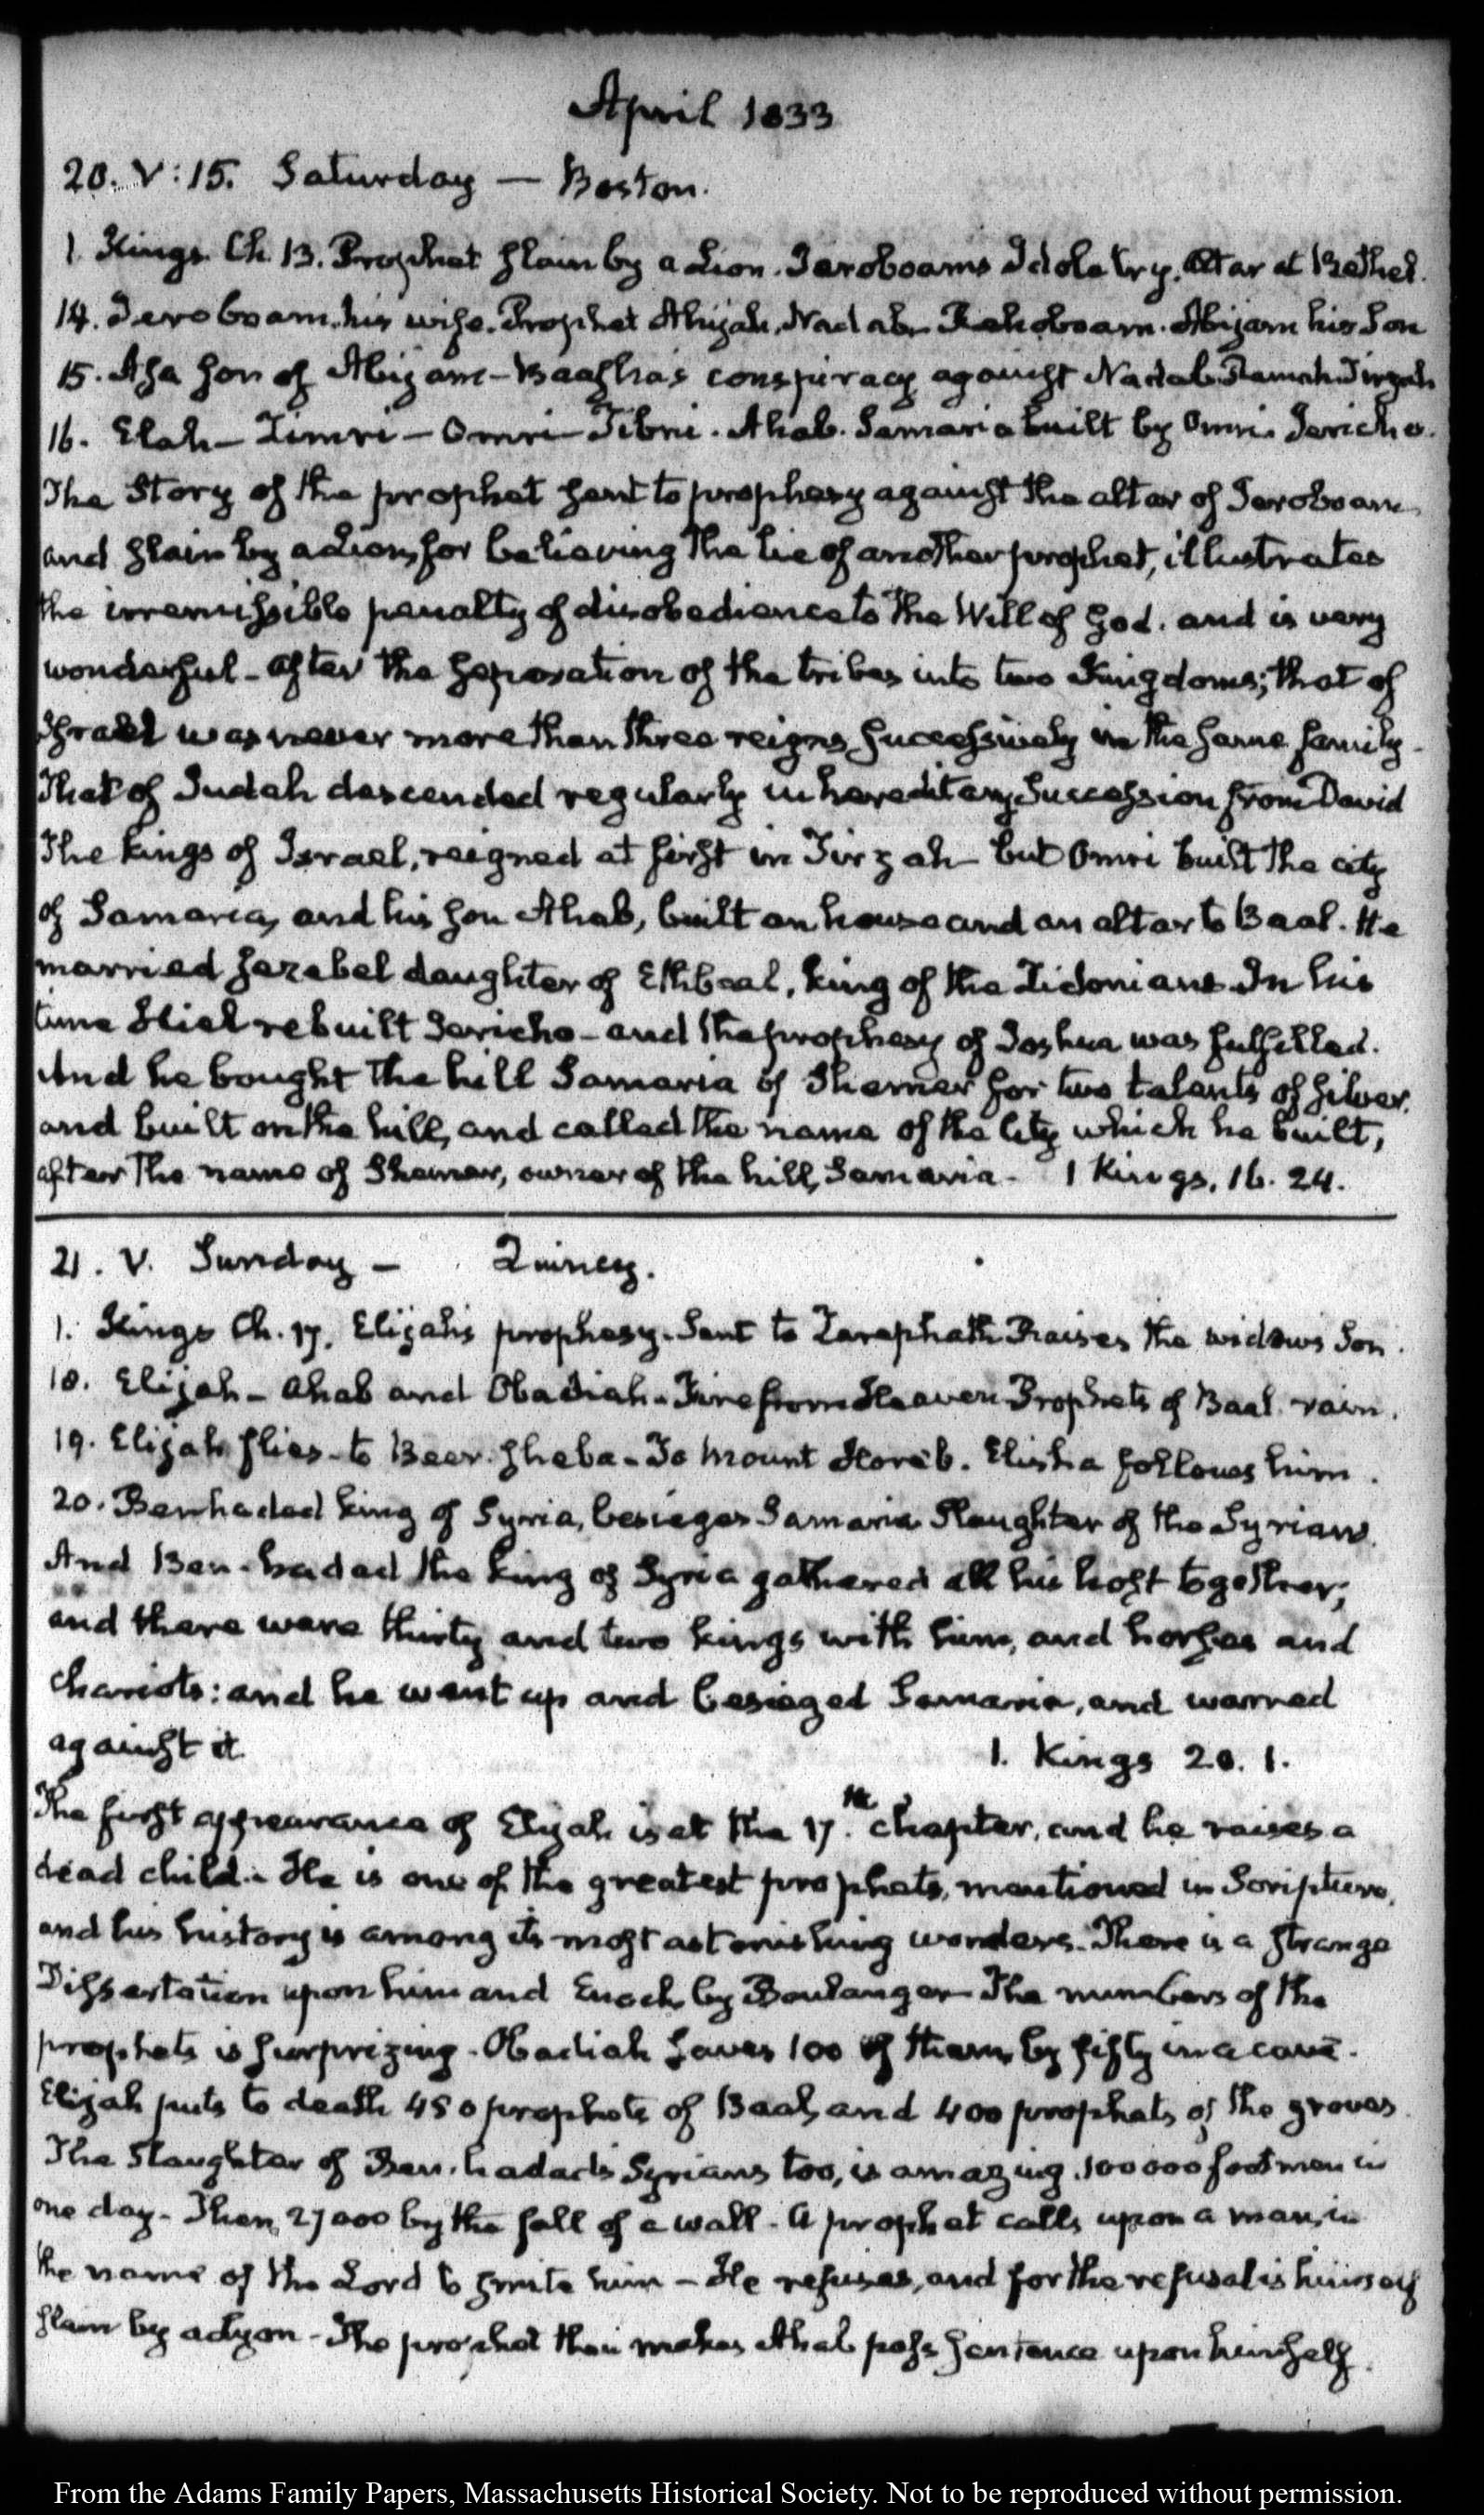 April 1833
20. V:15. Saturday — Boston.
1. Kings. Ch. 13. Prophet slain by a Lion. Jeroboams Idolatry. Altar at Bethel.
14. Jeroboam. his wife. Prophet Ahijah, Nadab. Rehoboam. Abijam his Son
15. Asa son of Abijam — Baasha's conspiracy against Nadab. Ramah. Tirzah
16. Elah — Zimri — Omri — Tibni. Ahab. Samaria built by Omri. Jericho.
The Story of the prophet sent to prophesy against the altar of Jeroboam
and slain by a Lion, for believing the lie of another prophet, illustrates
the irremissible penalty of disobedience to the Will of God. and is very
wonderful — After the separation of the tribes into two Kingdoms; that of
Israel was never more than three reigns successively in the same family —
That of Judah descended regularly in hereditary succession from David
The kings of Israel, reigned at first in Tirzah — but Omri built the city
of Samaria, and his son Ahab, built an house and an altar to Baal. He
married Jezebel daughter of Ethbaal, king of the Zidonians. In his
time Hiel rebuilt Jericho — and the prophesy of Joshua was fulfilled.
And he bought the hill Samaria of Shemer for two talents of silver,
and built on the hill, and called the name of the City which he built,
after the name of Shemer, owner of the hill, Samaria — 1 Kings, 16. 24.
21. V. Sunday — Quincy.
1. Kings Ch. 17. Elijah's prophesy. Sent to Zarephath Raises the widows Son.
18. Elijah — Ahab and Obadiah — Fire from Heaven Prophets of Baal. rain.
19. Elijah flies — to Beer-sheba — To Mount Horeb. Elisha follows him.
20. Benhadad king of Syria, besieges Samaria Slaughter of the Syrians.
And Ben-hadad the king of Syria gathered all his host together;
and there were thirty and two kings with him, and horses and
chariots: and he went up and besieged Samaria, and warred
against it. 1. Kings 20. 1.
The first appearance of Elijah is at the 17.th chapter, and he raises a
dead child. — He is one of the greatest prophets, mentioned in Scripture,
and his history is among its most astonishing wonders. There is a strange
Dissertation upon him and Enoch, by Boulanger — The numbers of the
prophets is surprizing — Obadiah saves 100 of them, by fifty in a cave.
Elijah puts to death 450 prophets of Baal, and 400 prophets of the groves
The Slaughter of Ben-hadad's Syrians too, is amazing. 100000 footmen in
one day — Then, 27000 by the fall of a wall — A prophet calls upon a man, in
the name of the Lord to smite him — He refuses, and for the refusal is himself
slain by a Lyon — The prophet then makes Ahab pass sentence upon himself.
From the Adams Family Papers, Massachusetts Historical Society. Not to be reproduced without permission.